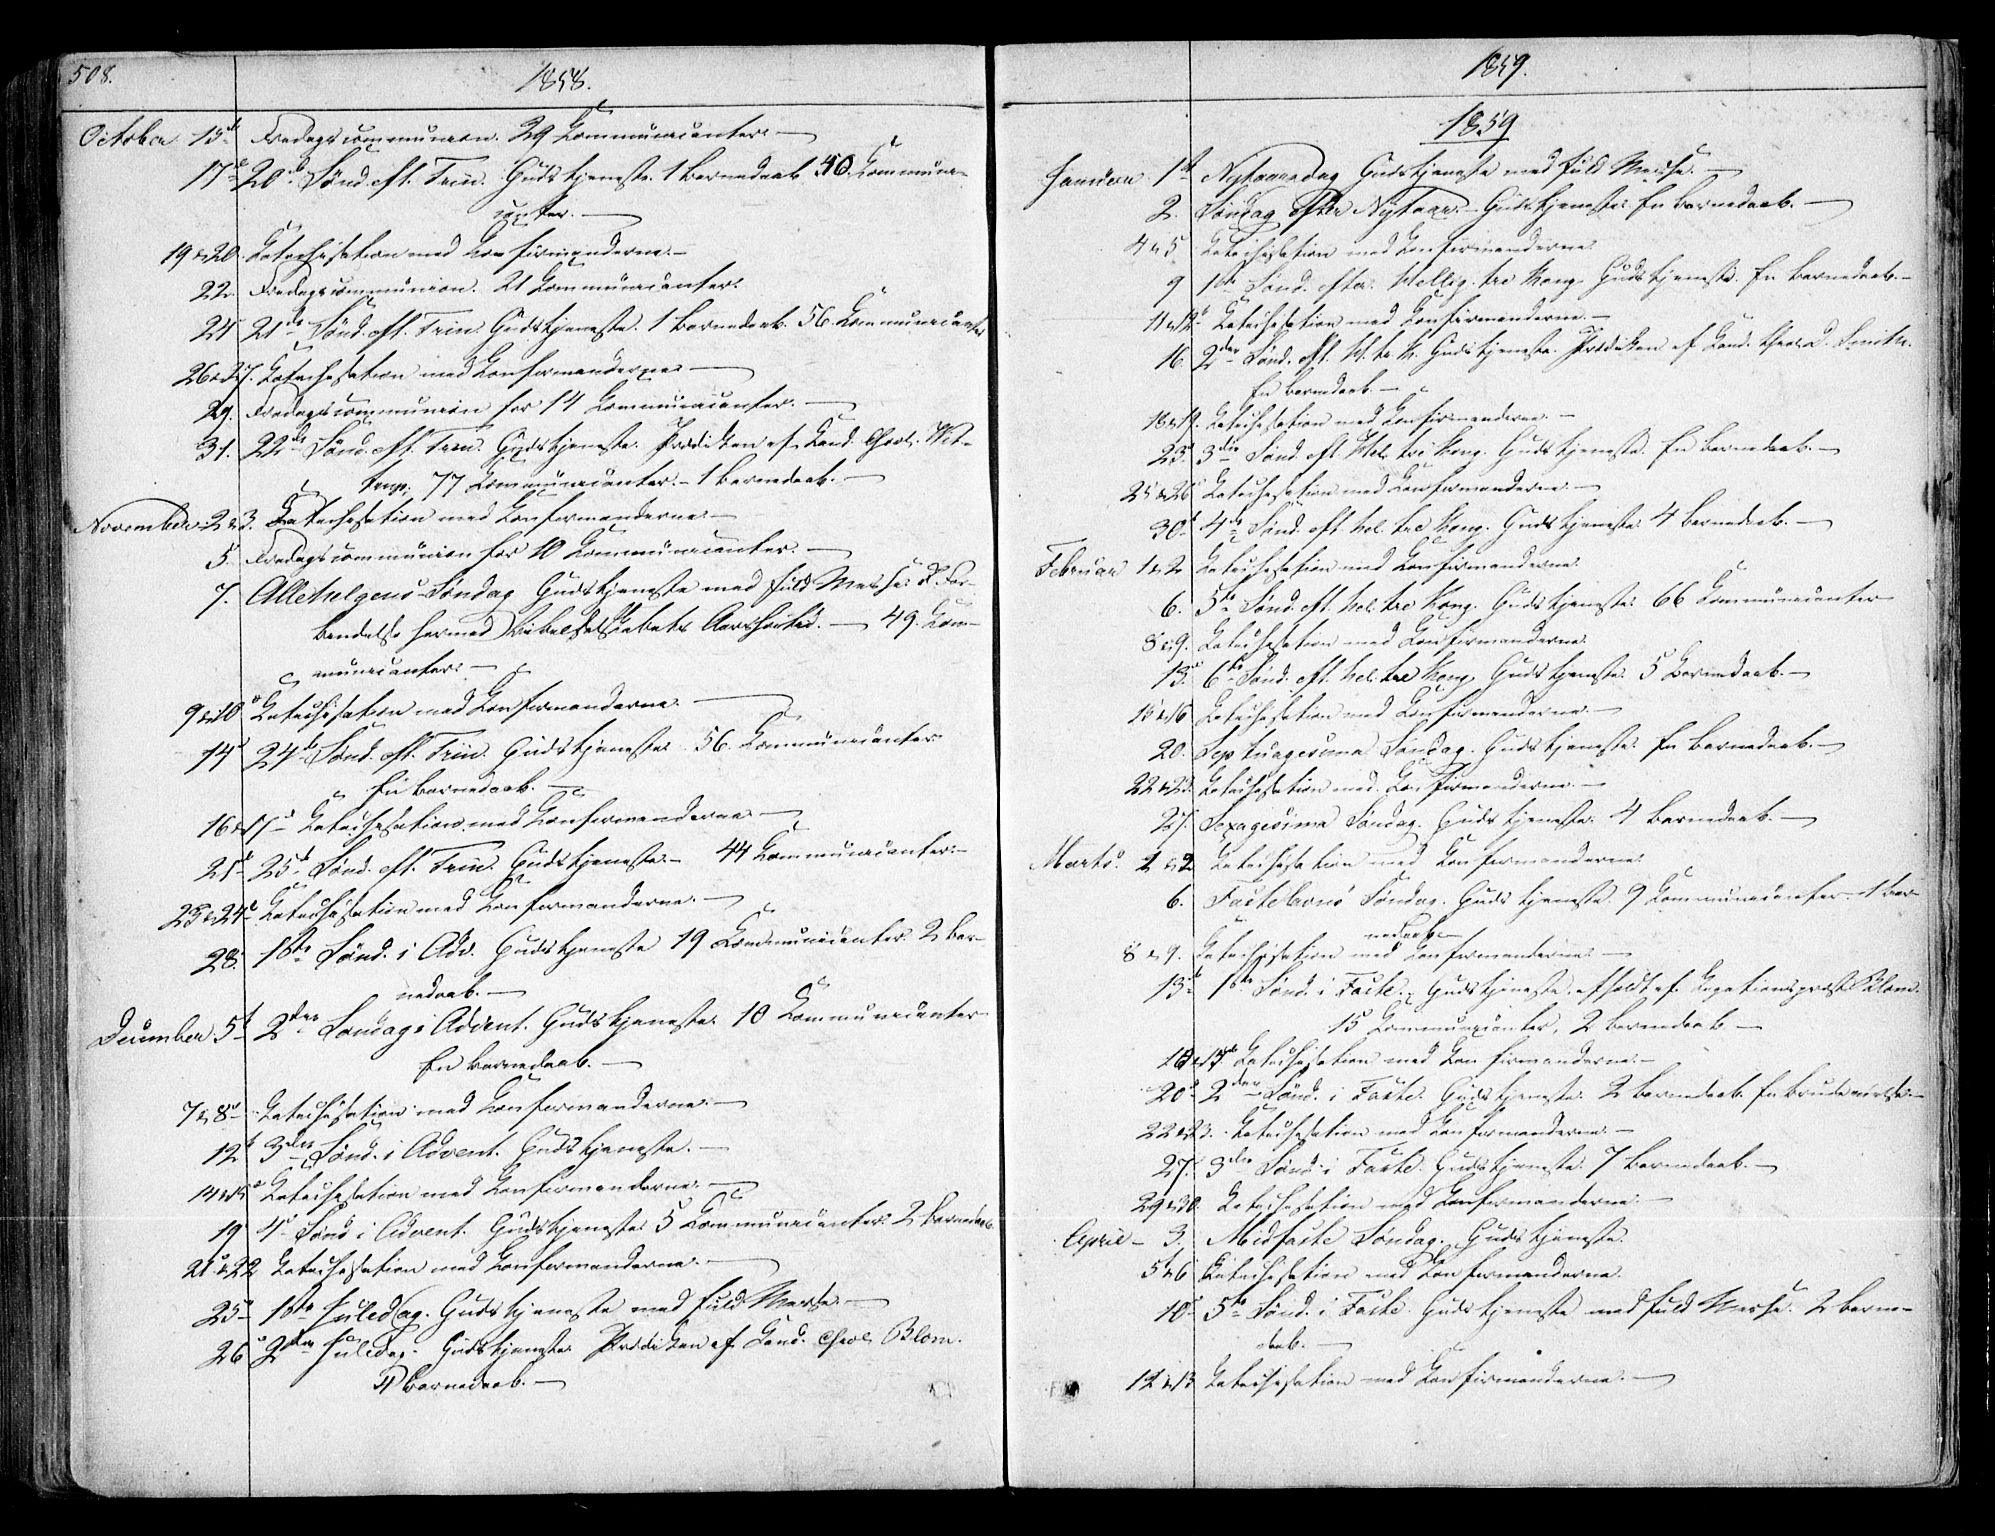 508.
1858.
October 15de Fredagscommunion. 29 Communicanter. —
17de 20de Sønd. eft. Trin. Gudstjeneste. 1 Barnedaab 50. Communi-
canter. —
19 & 20. Catechisation med Confirmanderne. —
22. Fredagscommunion. 21 Communicanter.
24 21de Sønd. eft. Trin. Gudstjeneste. 1 Barnedaab. 56. Communicanter
26 & 27. Catechisation med Confirmanderne. —
29. Fredagscommunion for 14 Communicanter. —
31. 22de Sønd. eft. Trin. Gudstjeneste. Prædiken af Cand. theol.
77 Communicanter. – 1 Barnedaab. —
November 2 & 3. Catechisation med Confirmanderne. —
5. Fredagscommunion for 10 Communicanter. —
7. Allehelgens-Søndag Gudstjeneste med fuld Messe. I For-
bindelse hermed Bibelselskabets Aarshøitid. — 49. Com-
municanter. —
9 & 10 Catechisation med Confirmanderne. —
14 24de Sønd. eft. Trin. Gudstjeneste. 56. Communicanter
En Barnedaab. —
16 & 17 Catechisation med Confirmanderne —
21 25de Sønd. eft. Trin. Gudstjeneste. – 44 Communicanter. –
23 & 24 Catechisation med Confirmanderne. —
28. 1ste Sønd. i Adv. Gudstjeneste 19 Communicanter. 2 Bar-
nedaab. —
December 5t 2den Søndag i Advent. Gudstjeneste. 10 Communicanter
En Barnedaab. —
7 & 8 Catechisation med Confirmanderne. —
12t 3die Sønd. i Advent. Gudstjeneste. —
14 & 15 Catechisation med Confirmanderne. —
19 4de Sønd i Advent. Gudstjeneste 5 Communicanter. 2 Barnedaab.
21 & 22 Catechisation med Confirmanderne. —
25 1ste Juledag. Gudstjeneste med fuld Messe. —
26 2den Juledag. Gudstjeneste. Prædiken af Cand. theol. Blom.
4 Barnedaab. —
1859.
1859
Januar 1st Nytaarsdag Gudstjeneste med fuld Messe. —
2. Søndag efter Nytaar. – Gudstjeneste. En Barnedaab. —
4 & 5 Catechisation med Confirmanderne.
9 1ste Sønd. efter Hellig. tre Kong. Gudstjeneste. En Barnedaab. —
11 & 12 Catechisation med Confirmanderne. —
16. 2den Sønd. eft. H. tr. K. Gudstjeneste. Prædiken af Cand. theol. Smith.
En Barnedaab. —
18 & 19. Catechisation med Confirmanderne. —
23. 3die Sønd. eft Hel. tre Kong. Gudstjeneste. En Barnedaab. —
25 & 26 Catechisation med Confirmanderne. —
30t 4de Sønd. eft. hel. tre Kong. Gudstjeneste. 4 Barnedaab. —
Februar 1 & 2 Catechisation med Confirmanderne.
6. 5te Sønd. eft. hel. tre Kong. Gudstjeneste. 66 Communicanter
8 & 9. Catechisation med Confirmanderne.
13. 6te Sønd. eft. hel. tre Kong. Gudstjeneste. 5 Barnedaab. —
15 & 16 Catechisation med Confirmanderne. —
20. Septuagesima Søndag. Gudstjeneste. En Barnedaab. —
22 & 23. Catechisation med. Confirmanderne. —
27. Sexagesima Søndag. Gudstjeneste. 4 Barnedaab. —
Marts. 1 & 2 Catechisation med Confirmanderne.
6. Fastelavns Søndag. Gudstjeneste. 9 Communicanter – 1 Bar-
nedaab —
8 & 9. Catechisation med Confirmanderne. —
13 1ste Sønd. i Faste. Gudstjeneste, afholdt af Blom.
15 Communicanter, 2 Barnedaab —
Catechisation med Confirmanderne. —
20 2den Sønd. i Faste. Gudstjeneste. 2 Barnedaab. En Brudevielse. —
22 & 23. Catechisation med Confirmanderne. —
27. 3die Sønd. i Faste. Gudstjeneste. 7 Barnedaab. —
29 & 30. Catechisation med Confirmanderne. —
April – 3. Midfaste Søndag. Gudstjeneste.
5 & 6 Catechisation med Confirmanderne.
10 5te Sønd. i Faste. Gudstjeneste med fuld Messe. 2 Barne-
daab. —
12 & 13 Catechisation med Confirmanderne. —